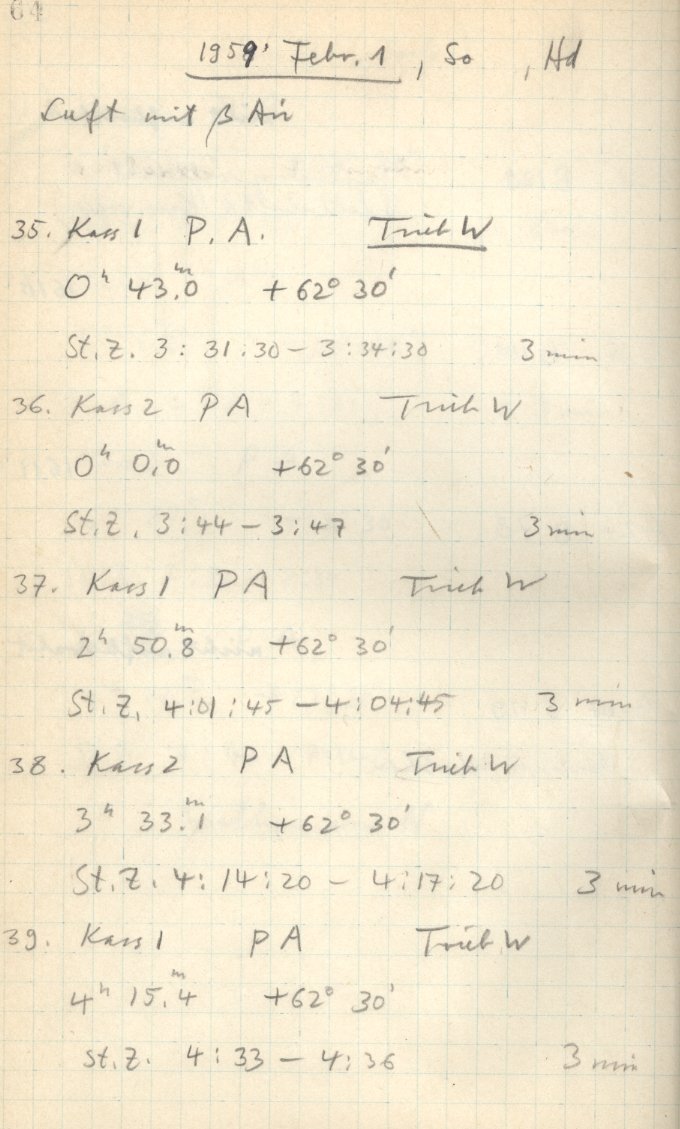 64
1959, Febr. 1, So, Hd
Luft mit β Air
35. Kass 1 P. A. Trieb W
0ʰ 43ᵐ.0 +62° 30'
St. Z. 3:31:30 – 3:34:30 3 min
36. Kass 2 P A Trieb W
0ʰ 0ᵐ.0 +62° 30'
St. Z. 3:44 – 3:47 3 min
37. Kass 1 P A Trieb W
2ʰ 50ᵐ.8 +62° 30'
St. Z. 4:01:45 – 4:04:45 3 min
38. Kass 2 P A Trieb W
3ʰ 33ᵐ.1 +62° 30'
St. Z. 4:14:20 – 4:17:20 3 min
39. Kass 1 P A Trieb W
4ʰ 15ᵐ.4 +62° 30'
St. Z. 4:33 – 4:36 3 min